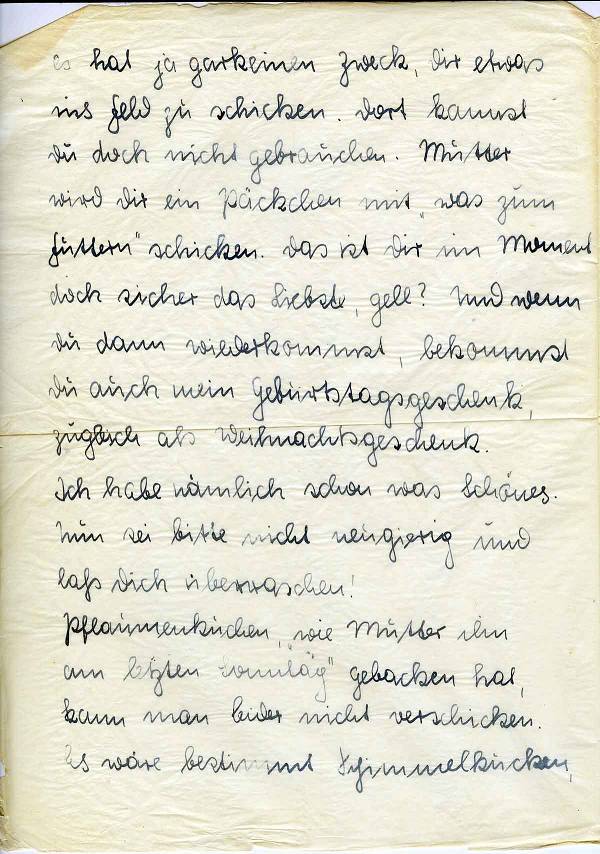 es hat ja garkeinen Zweck, dir etwas
ins Feld zu schicken. Dort kannst
du doch nicht gebrauchen. Mutter
wird dir ein Päckchen mit „was zum
futtern" schicken. Das ist dir im Moment
doch sicher das Liebste, gell? Und wenn
du dann wiederkommst, bekommst
du auch mein Geburtstagsgeschenk,
zugleich als Weihnachtsgeschenk.
Ich habe nämlich schon was Schönes.
Nun sei bitte nicht neugierig und
laß dich überraschen!
Pflaumenkuchen, „wie Mutter ihn
am letzten Sonntag" gebacken hat,
kann man leider nicht verschicken.
Es wäre bestimmt Schimmelkuchen,